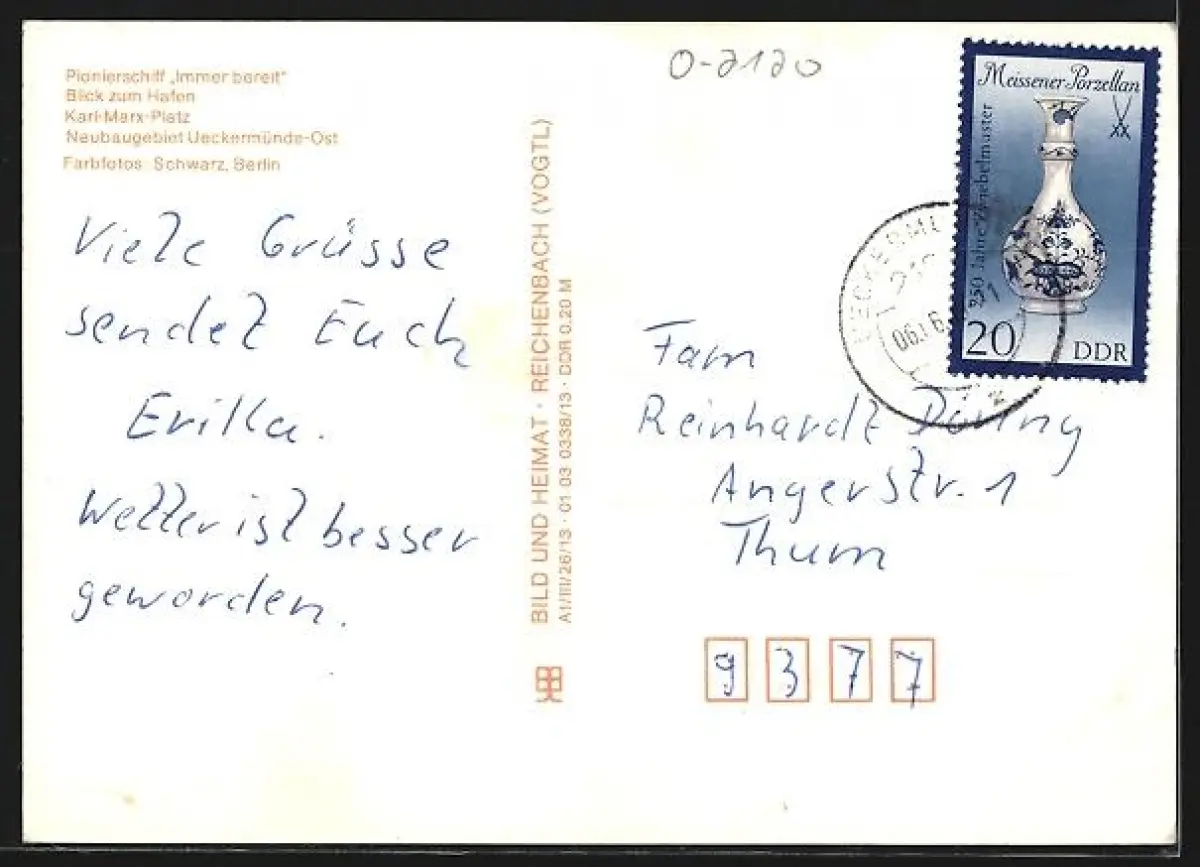 Pionierschiff „Immer bereit“
Blick zum Hafen
Karl-Marx-Platz
Neubaugebiet Ueckermünde-Ost
Farbfotos: Schwarz, Berlin
Viele Grüsse
sendet Euch
Erika.
Wetter ist besser
geworden.
BILD UND HEIMAT · REICHENBACH (VOGTL)
A1/III/26/13 · 01 03 0338/13 · DDR 0,20 M
0-2120
Meissener Porzellan
250 Jahre Zwiebelmuster
20 DDR
Fam
Reinhardt Döring
Angerstr. 1
Thum
9 3 7 7